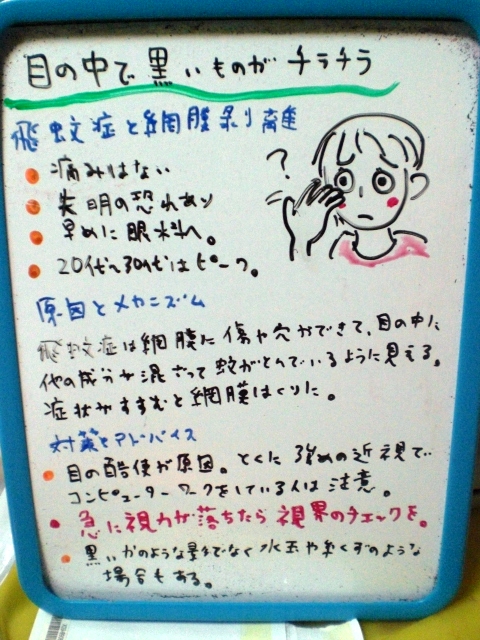 目の中で黒いものがチラチラ
飛蚊症と網膜剥離
痛みはない
失明の恐れあり
早めに眼科へ。
20代〜30代はピーク。
?
原因とメカニズム
飛蚊症は網膜に傷や穴ができて、目の中に
他の成分が混ざって蚊がとんでいるように見える。
症状がすすむと網膜はくりに。
対策とアドバイス
目の酷使が原因。とくに強めの近視で
コンピューターワークをしている人は注意。
急に視力が落ちたら視界のチェックを。
黒いかのような影でなく水玉や糸くずのような
場合もある。